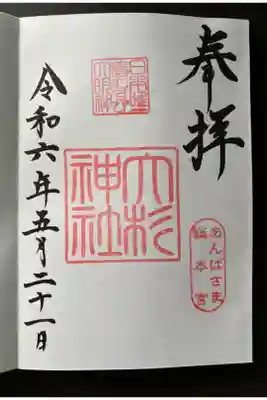 奉拝
あんばさま
総本宮
大杉
神社
令和六年五月二十一日